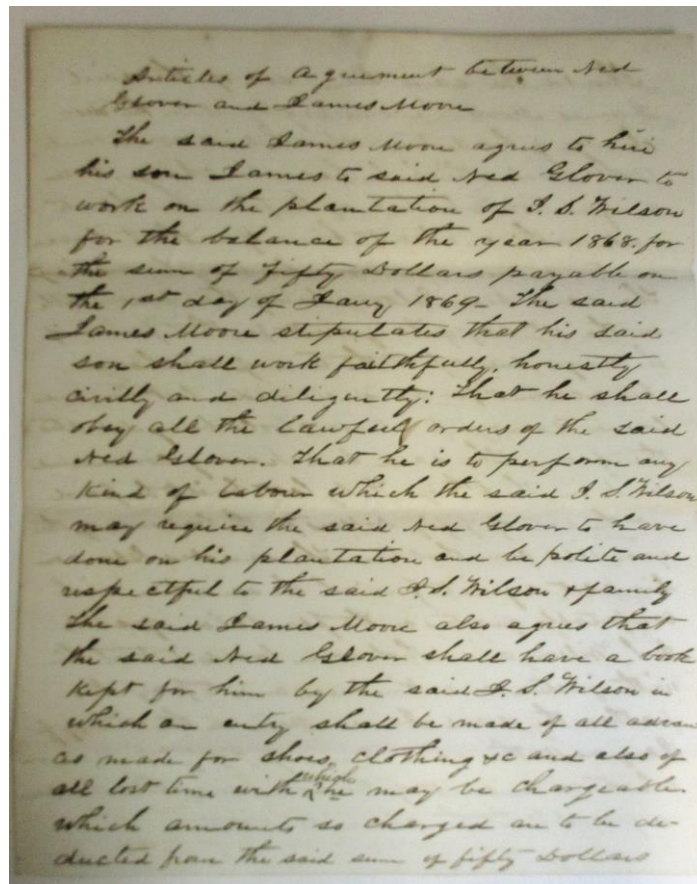 Articles of Agreement between Ned
Glover and James Moore
The said James Moore agrees to hire
his son James to said Ned Glover to
work on the plantation of I. S. Wilson
for the balance of the year 1868. for
the sum of fifty Dollars payable on
the 1st day of Jany 1869 - The said
James Moore stipulates that his said
son shall work faithfully, honestly
civilly and diligently: That he shall
obey all the lawful orders of the said
Ned Glover. That he is to perform any
kind of labour which the said I. S. Wilson
may require the said Ned Glover to have
done on his plantation and be polite and
respectful to the said I. S. Wilson & family
The said James Moore also agrees that
the said Ned Glover shall have a book
kept for him by the said I. S. Wilson in
which an entry shall be made of all advan
as made for shoes, clothing &c and also of
all lost time with which he may be chargeable
which amounts so charged are to be de-
ducted from the said sum of fifty Dollars